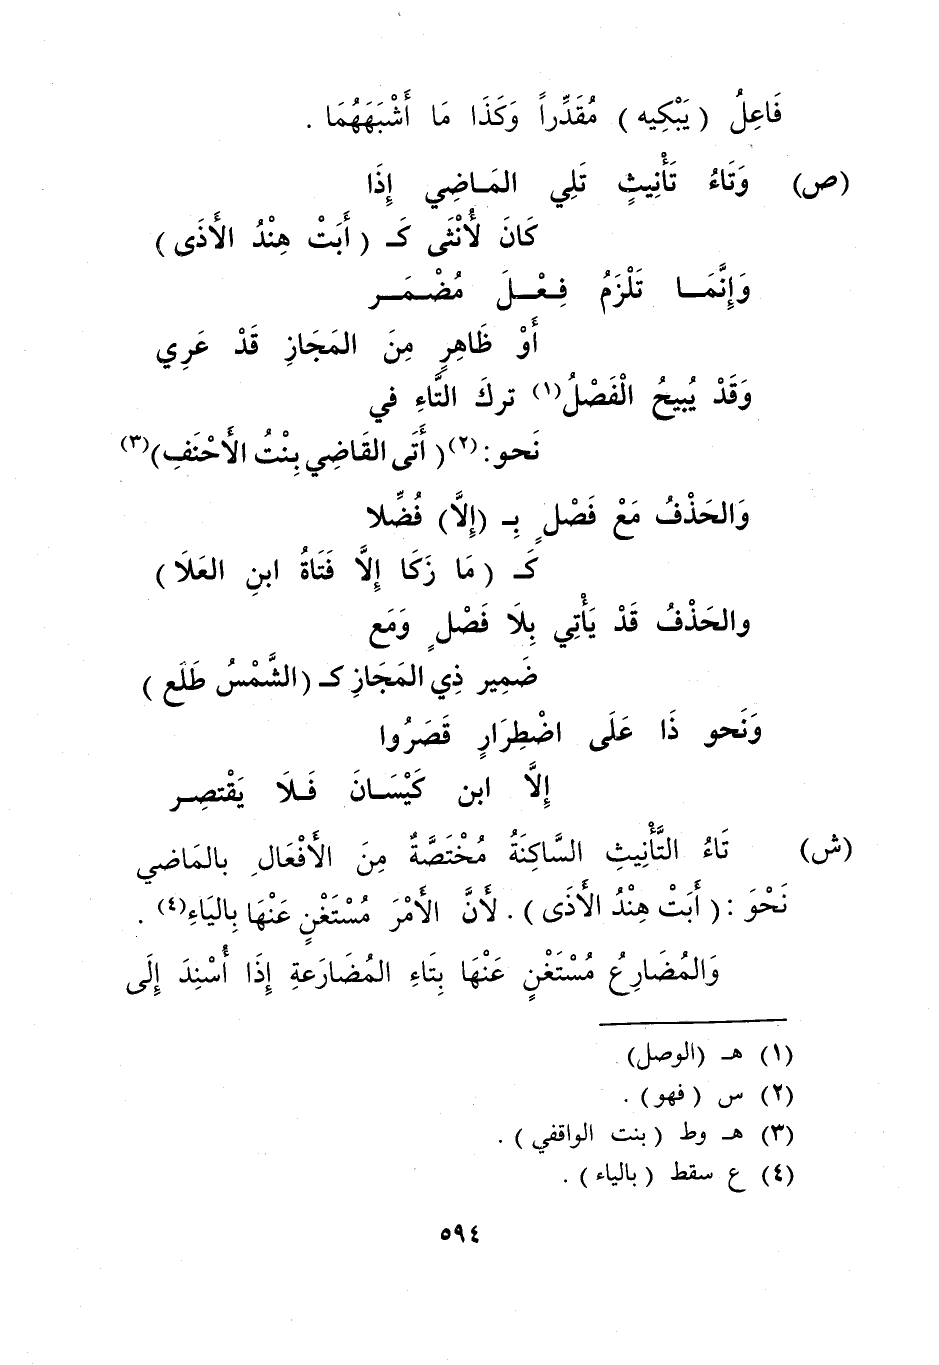 فَاعِلُ ( يَبْكِيه ) مُقَدِّراً وَكَذَا مَا أَشْبَهَهُمَا .
(ص) وَتَاءُ تَأْنِيثٍ تَلِي المَـاضِي إِذَا
كَانَ لأُنْثَى كَـ ( أَبَتْ هِنْدُ الأَذَى )
وَإِنَّمَــا تَلْزَمُ فِـعْــلَ مُضْـمَــرِ
أَوْ ظَاهِرٍ مِنَ المَجَازِ قَدْ عَرِي
وَقَدْ يُبيحُ الْفَصْلُ(١) تركَ التَّاءِ في
نَحو :(٢)( أَتَى القَاضِي بِنْتُ الأَحْنَفِ )(٣)
وَالحَذْفُ مَعْ فَصْلٍ بِـ (إِلَّا) فُضِّلا
كَـ ( مَا زَكَا إِلَّا فَتَاةُ ابنِ العَلَا )
والحَذْفُ قَدْ يَأْتِي بِلَا فَصْلٍ وَمَع
ضَمِير ذِي المَجَازِ كـ ( الشَّمْسُ طَلَع )
وَنَحو ذَا عَلَى اضْطِرَارٍ قَصَرُوا
إِلَّا ابن كَيْسَــانَ فَـلَا يَقْتصِـر
(ش) تَاءُ التَّأْنِيثِ السَّاكِنَةُ مُخْتَصَّةٌ مِنَ الأَفْعَالِ بالمَاضي
نَحْوَ : ( أَبَتْ هِنْدُ الأَذَى ) . لأَنَّ الأَمْرَ مُسْتَغْنٍ عَنْهَا بِاليَاءِ(٤) .
وَالمُضَارِعُ مُسْتَغْنٍ عَنْهَا بِتَاءِ المُضَارَعةِ إِذَا أُسْنِدَ إِلَى
(١) هـ (الوصل)
(٢) س ( فهو ) .
(٣) هـ وط ( بنت الواقفي ) .
(٤) ع سقط ( بالياء ) .
٥٩٤